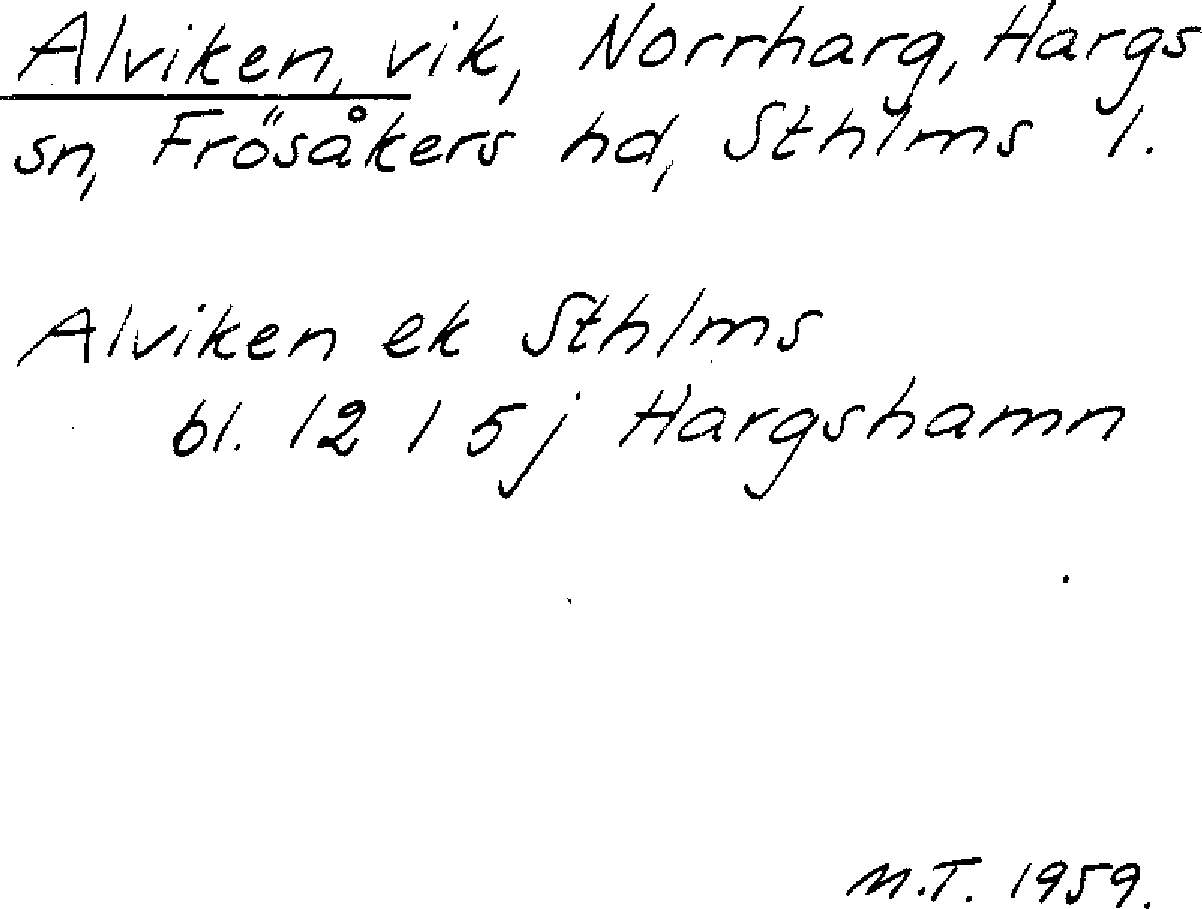 Alviken, vik, Norrharg, Hargs
sn, Frösåkers hd, Sthlms l.
Alviken ek Sthlms
bl. 12 I 5j Hargshamn
M.T. 1959.